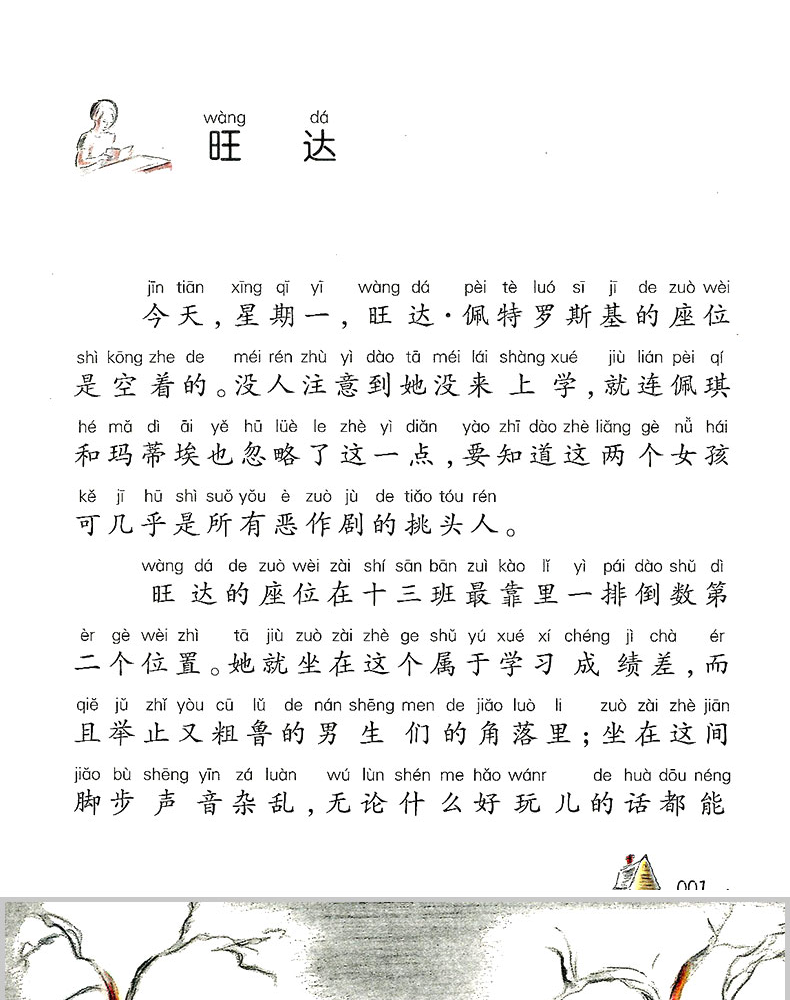 wàng dá
旺 达
jīn tiān xīng qī yī wàng dá pèi tè luó sī jī de zuò wèi
今天,星期一,旺达·佩特罗斯基的座位
shì kōng zhe de méi rén zhù yì dào tā méi lái shàng xué jiù lián pèi qí
是空着的。没人注意到她没来上学,就连佩琪
hé mǎ dì āi yě hū lüè le zhè yì diǎn yào zhī dào zhè liǎng gè nǚ hái
和玛蒂埃也忽略了这一点,要知道这两个女孩
kě jī hū shì suǒ yǒu è zuò jù de tiǎo tóu rén
可几乎是所有恶作剧的挑头人。
wàng dá de zuò wèi zài shí sān bān zuì kào lǐ yì pái dào shǔ dì
旺达的座位在十三班最靠里一排倒数第
èr gè wèi zhì tā jiù zuò zài zhè ge shǔ yú xué xí chéng jì chà ér
二个位置。她就坐在这个属于学习成绩差,而
qiě jǔ zhǐ yòu cū lǔ de nán shēng men de jiǎo luò li zuò zài zhè jiān
且举止又粗鲁的男生们的角落里;坐在这间
jiǎo bù shēng yīn zá luàn wú lùn shén me hǎo wánr de huà dōu néng
脚步声音杂乱,无论什么好玩儿的话都能
001